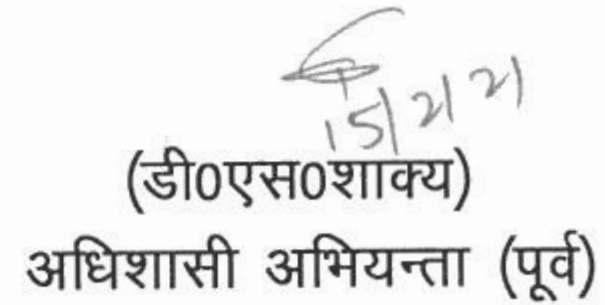 15/2/21
(डी0एस0शाक्य)
अधिशासी अभियन्ता (पूर्व)